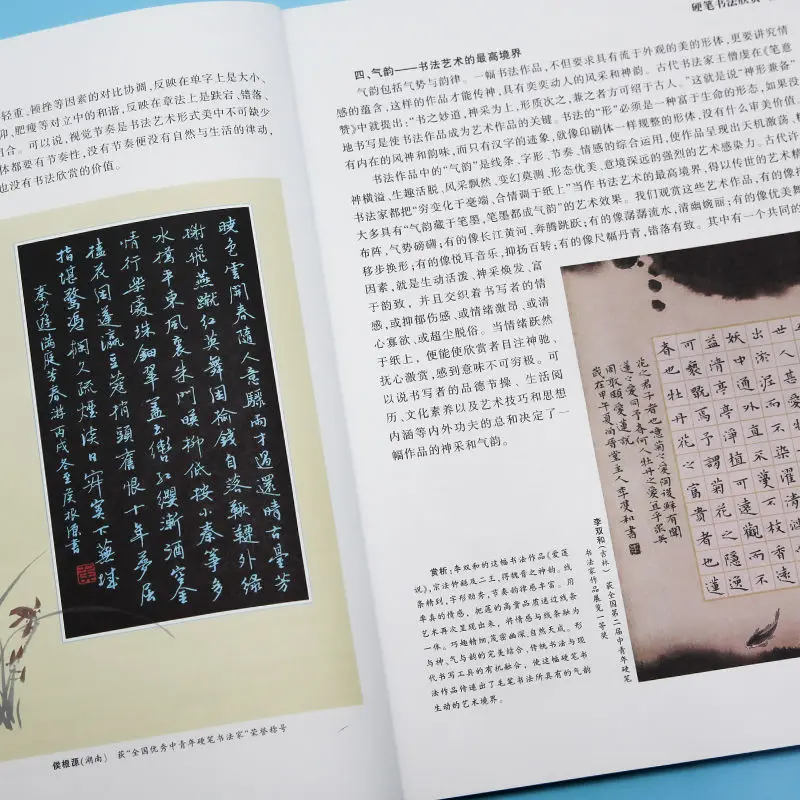 轻重、顿挫等因素的对比协调，反映在单字上是大小、
仰、肥瘦等对立中的和谐，反映在章法上是跌宕、错落、
合。可以说，视觉节奏是书法艺术形式美中不可缺少
体都要有节奏性，没有节奏便没有自然与生活的律动，
也没有书法欣赏的价值。
曉色雲開春隨人意驟雨才過還晴古臺芳
榭飛燕蹴紅英舞困榆錢自落鞦韆外綠
水橋平東風裏朱門暎柳低按小秦箏多
情行樂處珠鈿翠蓋玉轡紅纓漸酒空金
榼花困蓬瀛豆蔻梢頭舊恨十年夢屈
指堪驚憑欄久疏煙淡日寂寞下蕪城
秦少游滿庭芳春游丙戌冬至侯根源書
侯根源(湖南) 获“全国优秀中青年硬笔书法家”荣誉称号
硬笔书法欣赏
四、气韵——书法艺术的最高境界
气韵包括气势与韵律。一幅书法作品，不但要求具有流于外观的美的形体，更要讲究情
感的蕴含，这样的作品才能传神，具有奕奕动人的风采和神韵。古代书法家王僧虔在《笔意
赞》中就提出：“书之妙道，神采为上，形质次之，兼之者方可绍于古人。”这就是说“神形兼备”
地书写是使书法作品成为艺术作品的关键。书法的“形”必须是一种富于生命的形态，如果没
有内在的风神和韵味，而只有汉字的迹象，就像印刷体一样规整的形体，没有什么审美价值。
书法作品中的“气韵”是线条、字形、节奏、情感的综合运用，使作品呈现出天机激荡、精
神横溢、生趣活脱、风采飘然、变幻莫测、形态优美、意境深远的强烈的艺术感染力。古代许
书法家都把“穷变化于毫端，合情调于纸上”当作书法艺术的最高境界，得以传世的艺术精
大多具有“气韵藏于笔墨，笔墨都成气韵”的艺术效果。我们观赏这些艺术作品，有的像排
布阵，气势磅礴；有的像长江黄河，奔腾跳跃；有的像潺潺流水，清幽婉丽；有的像优美舞
移步换形；有的像悦耳音乐，抑扬百转；有的像尺幅丹青，错落有致。其中有一个共同的
因素，就是生动活泼、神采焕发、富
于韵致，并且交织着书写者的情
感，或抑郁伤感，或情绪激昂，或清
心寡欲，或超尘脱俗。当情绪跃然
于纸上，便能使欣赏者目注神驰、
抚心激赏，感到意味不可穷极。可
以说书写者的品德节操、生活阅
历、文化素养以及艺术技巧和思想
内涵等内外功夫的总和决定了一
幅作品的神采和气韵。
益清亭亭淨植可遠觀而不
可褻翫焉予謂菊花之隱逸
也牡丹花之富貴者也蓮
花之君子者也噫菊之愛陶後鮮有聞
蓮之愛同予者何人牡丹之愛宜乎衆矣
周敦頤愛蓮說
李双和(吉林) 获全国第二届中青年硬笔
书法家作品展览一等奖
赏析：李双和的这幅书法作品《爱莲
说》，宗法钟繇及二王，得魏晋之神韵。线
条精到，字形劲秀，节奏韵律感丰富。用
率真的情感，把莲的高贵品质透过线条
艺术再次呈现出来，将情感与线条融为
一体。巧趣精细，茂密幽深，自然天成。形
与神、气与韵的完美结合，传统书法与现
代书写工具的有机融合，使这幅硬笔书
法作品传递出了毛笔书法所具有的气韵
生动的艺术境界。